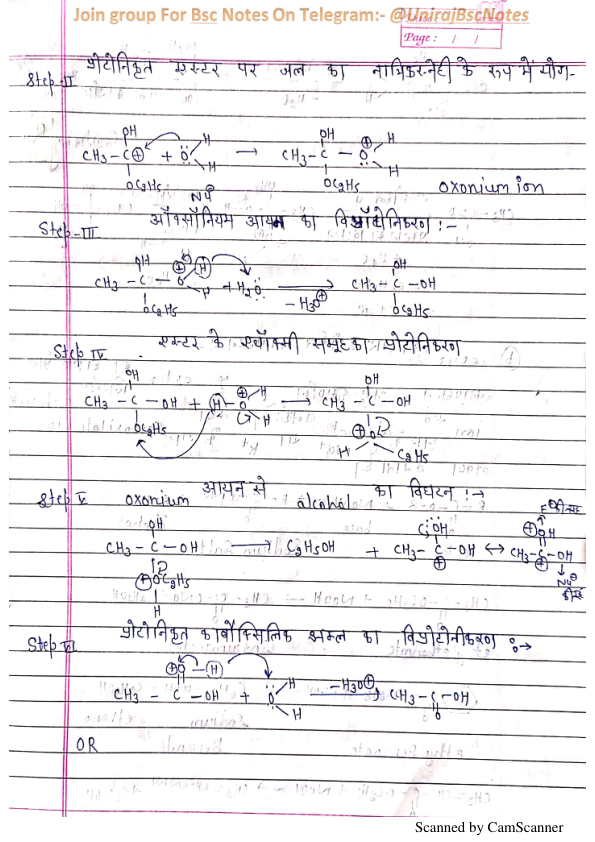 Join group For Bsc Notes On Telegram:- @UnirajBscNotes
Page: / /
Step-II प्रोटोनिकृत एस्टर पर जल का नाभिकस्नेही के रूप में योग-
OH H
CH3-C⊕ + Ö → CH3-C-O⊕ H
OC2H5 H OC2H5 H oxonium ion
Nu
Step-III ऑक्सोनियम आयन का विप्रोटोनिकरण :-
OH ⊕ H OH
CH3-C-O H + H2O → CH3-C-OH
OC2H5 -H3O⊕ OC2H5
Step IV एस्टर के एथॉक्सी समूह का प्रोटोनिकरण
OH ⊕ H OH
CH3-C-OH + H-O H → CH3-C-OH
OC2H5 ⊕O
H C2H5
Step V oxonium आयन से alcohal का विघटन :→
OH :OH ⊕OH
CH3-C-OH → C2H5OH + CH3-C-OH ↔ CH3-C-OH
⊕OC2H5 ⊕ ⊕
H Nu⊖
Step VI प्रोटोनिकृत कार्बोक्सिलिक अम्ल का विप्रोटोनीकरण :→
⊕O-H H
CH3-C-OH + O H -H3O⊕ → CH3-C-OH
O
OR
Scanned by CamScanner